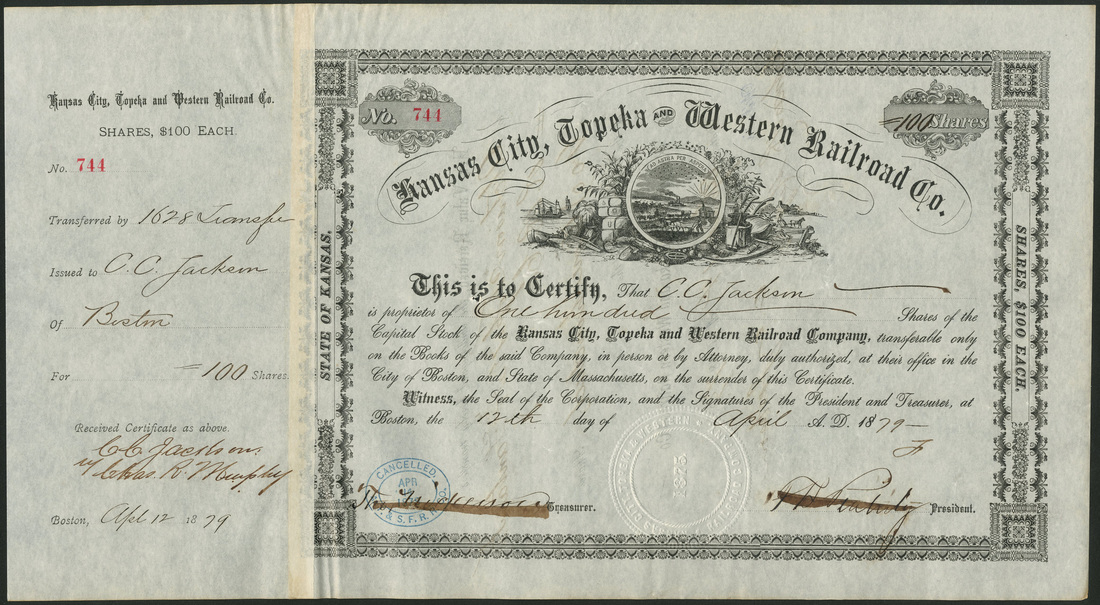 Kansas City, Topeka and Western Railroad Co.
SHARES, $100 EACH.
No. 744
Transferred by 1628 Transfe
Issued to C. C. Jackson
Of Boston
For =100 Shares.
Received Certificate as above.
C C Jackson
by Chas. R. Murphy
Boston, Apl 12 1879
STATE OF KANSAS.
No. 744
=100 Shares
Kansas City, Topeka AND Western Railroad Co.
AD ASTRA PER ASPERA
This is to Certify, That C. C. Jackson
is proprietor of One hundred Shares of the
Capital Stock of the Kansas City, Topeka and Western Railroad Company, transferable only
on the Books of the said Company, in person or by Attorney, duly authorized, at their office in the
City of Boston, and State of Massachusetts, on the surrender of this Certificate.
Witness, the Seal of the Corporation, and the Signatures of the President and Treasurer, at
Boston, the 12th day of April A. D. 1879
CANCELLED
APR
S. F. R. R. CO.
1875
Treasurer.
President.
SHARES, $100 EACH.